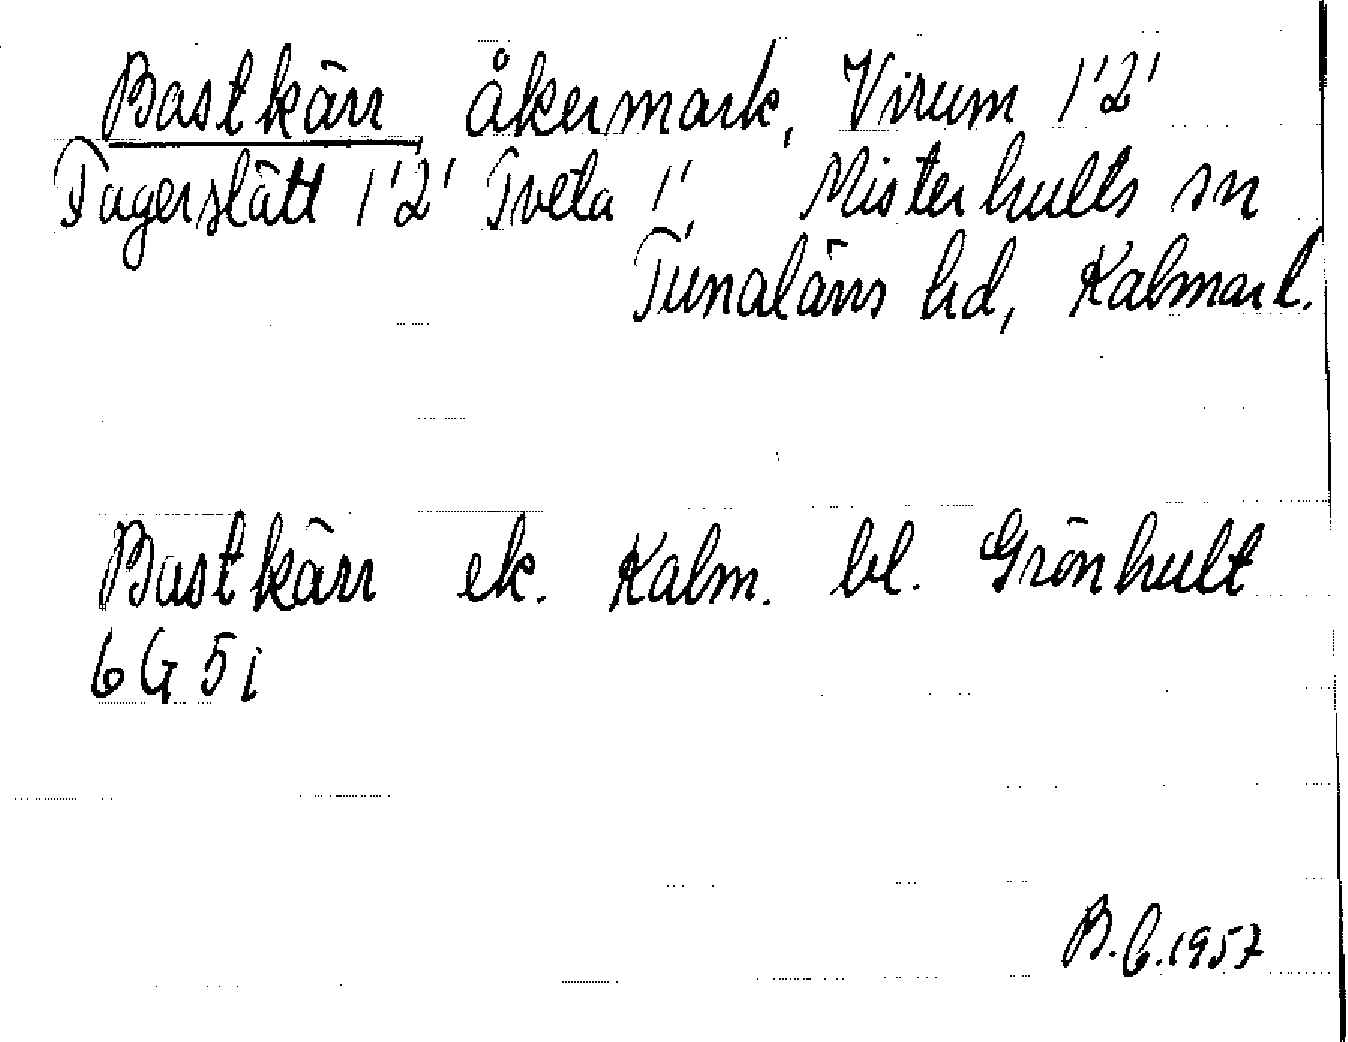 Bastkärr åkermark, Virum 1'2'
Fagerslätt 1'2' Tveta 1', Misterhults sn
Tunaläns hd, Kalmar l.
Bastkärr ek. Kalm. bl. Grönhult
6 G 5 i
B. 6. 1957